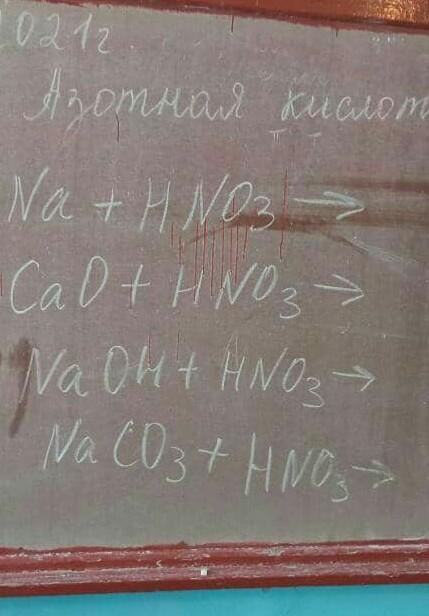 2021г
Азотная кислот
Na + HNO3 →
CaO + HNO3 →
NaOH + HNO3 →
NaCO3 + HNO3 →